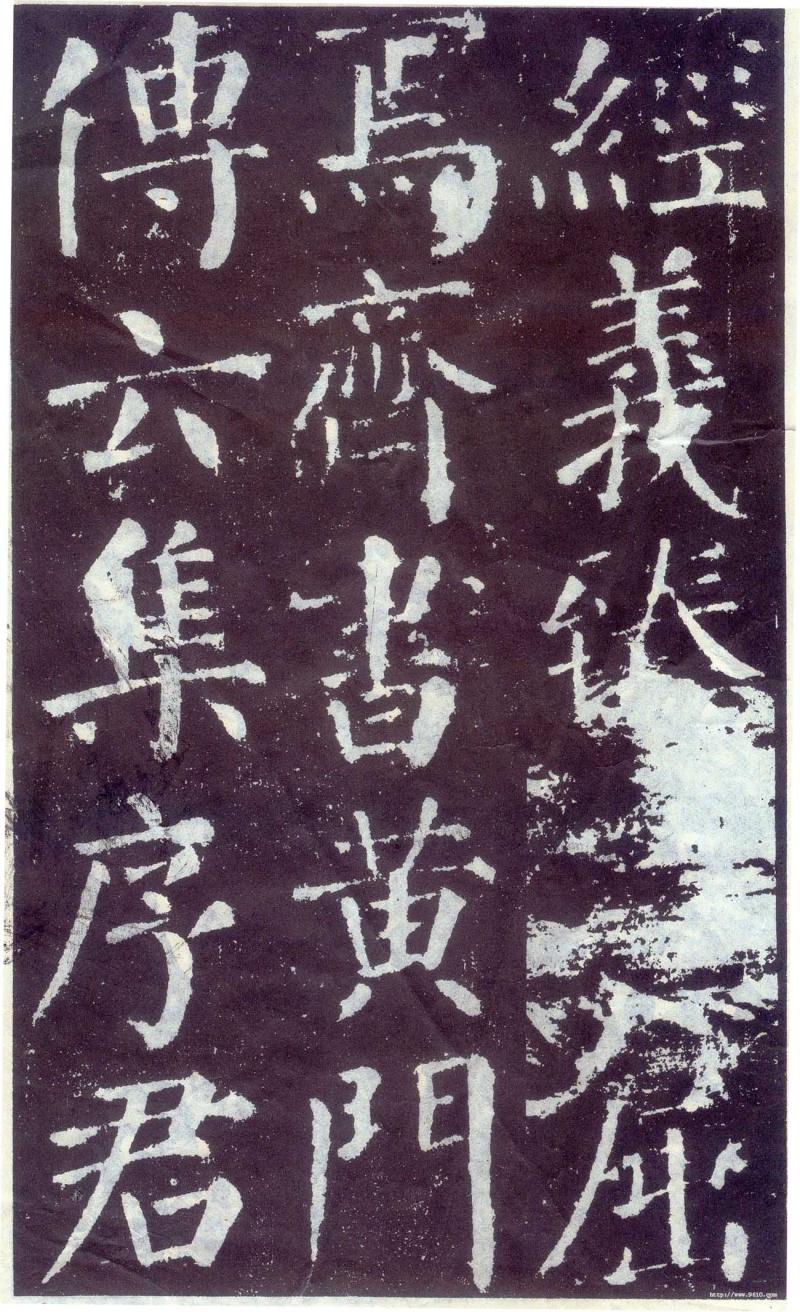 經義屈
焉齊書黃門
傳云集序君
http://www.9610.com